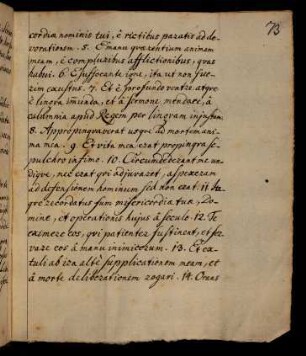 73
cordiæ nominis tui, è rictibus paratis ad de
vorationem. 5. E manu quærentium animam
meam, è compluribus afflictionibus, quas
habui. 6. E suffocante igne, ita ut non fue
rim exustus. 7. Et è profundo ventre atque
è lingva immunda, et à sermone mendaci, à
calumnia apud Regem per lingvam injustam
8. Appropinquaverat usque ad mortem ani
ma mea. 9. Et vita mea erat propinqua se
pulchro infimo. 10. Circumdederant me un
dique, nec erat qui adjuvaret, aspexeram
ad defensionem hominum sed non erat. 11.
recordatus sum misericordia tua, Do
mine, et operationis hujus à seculo. 12. Te
eos, qui patienter sustinent, et
eos à manu inimicorum. 13. Et
tuli ab altè supplicationem meam, et
à morte deliberationem rogavi. 14. Orans